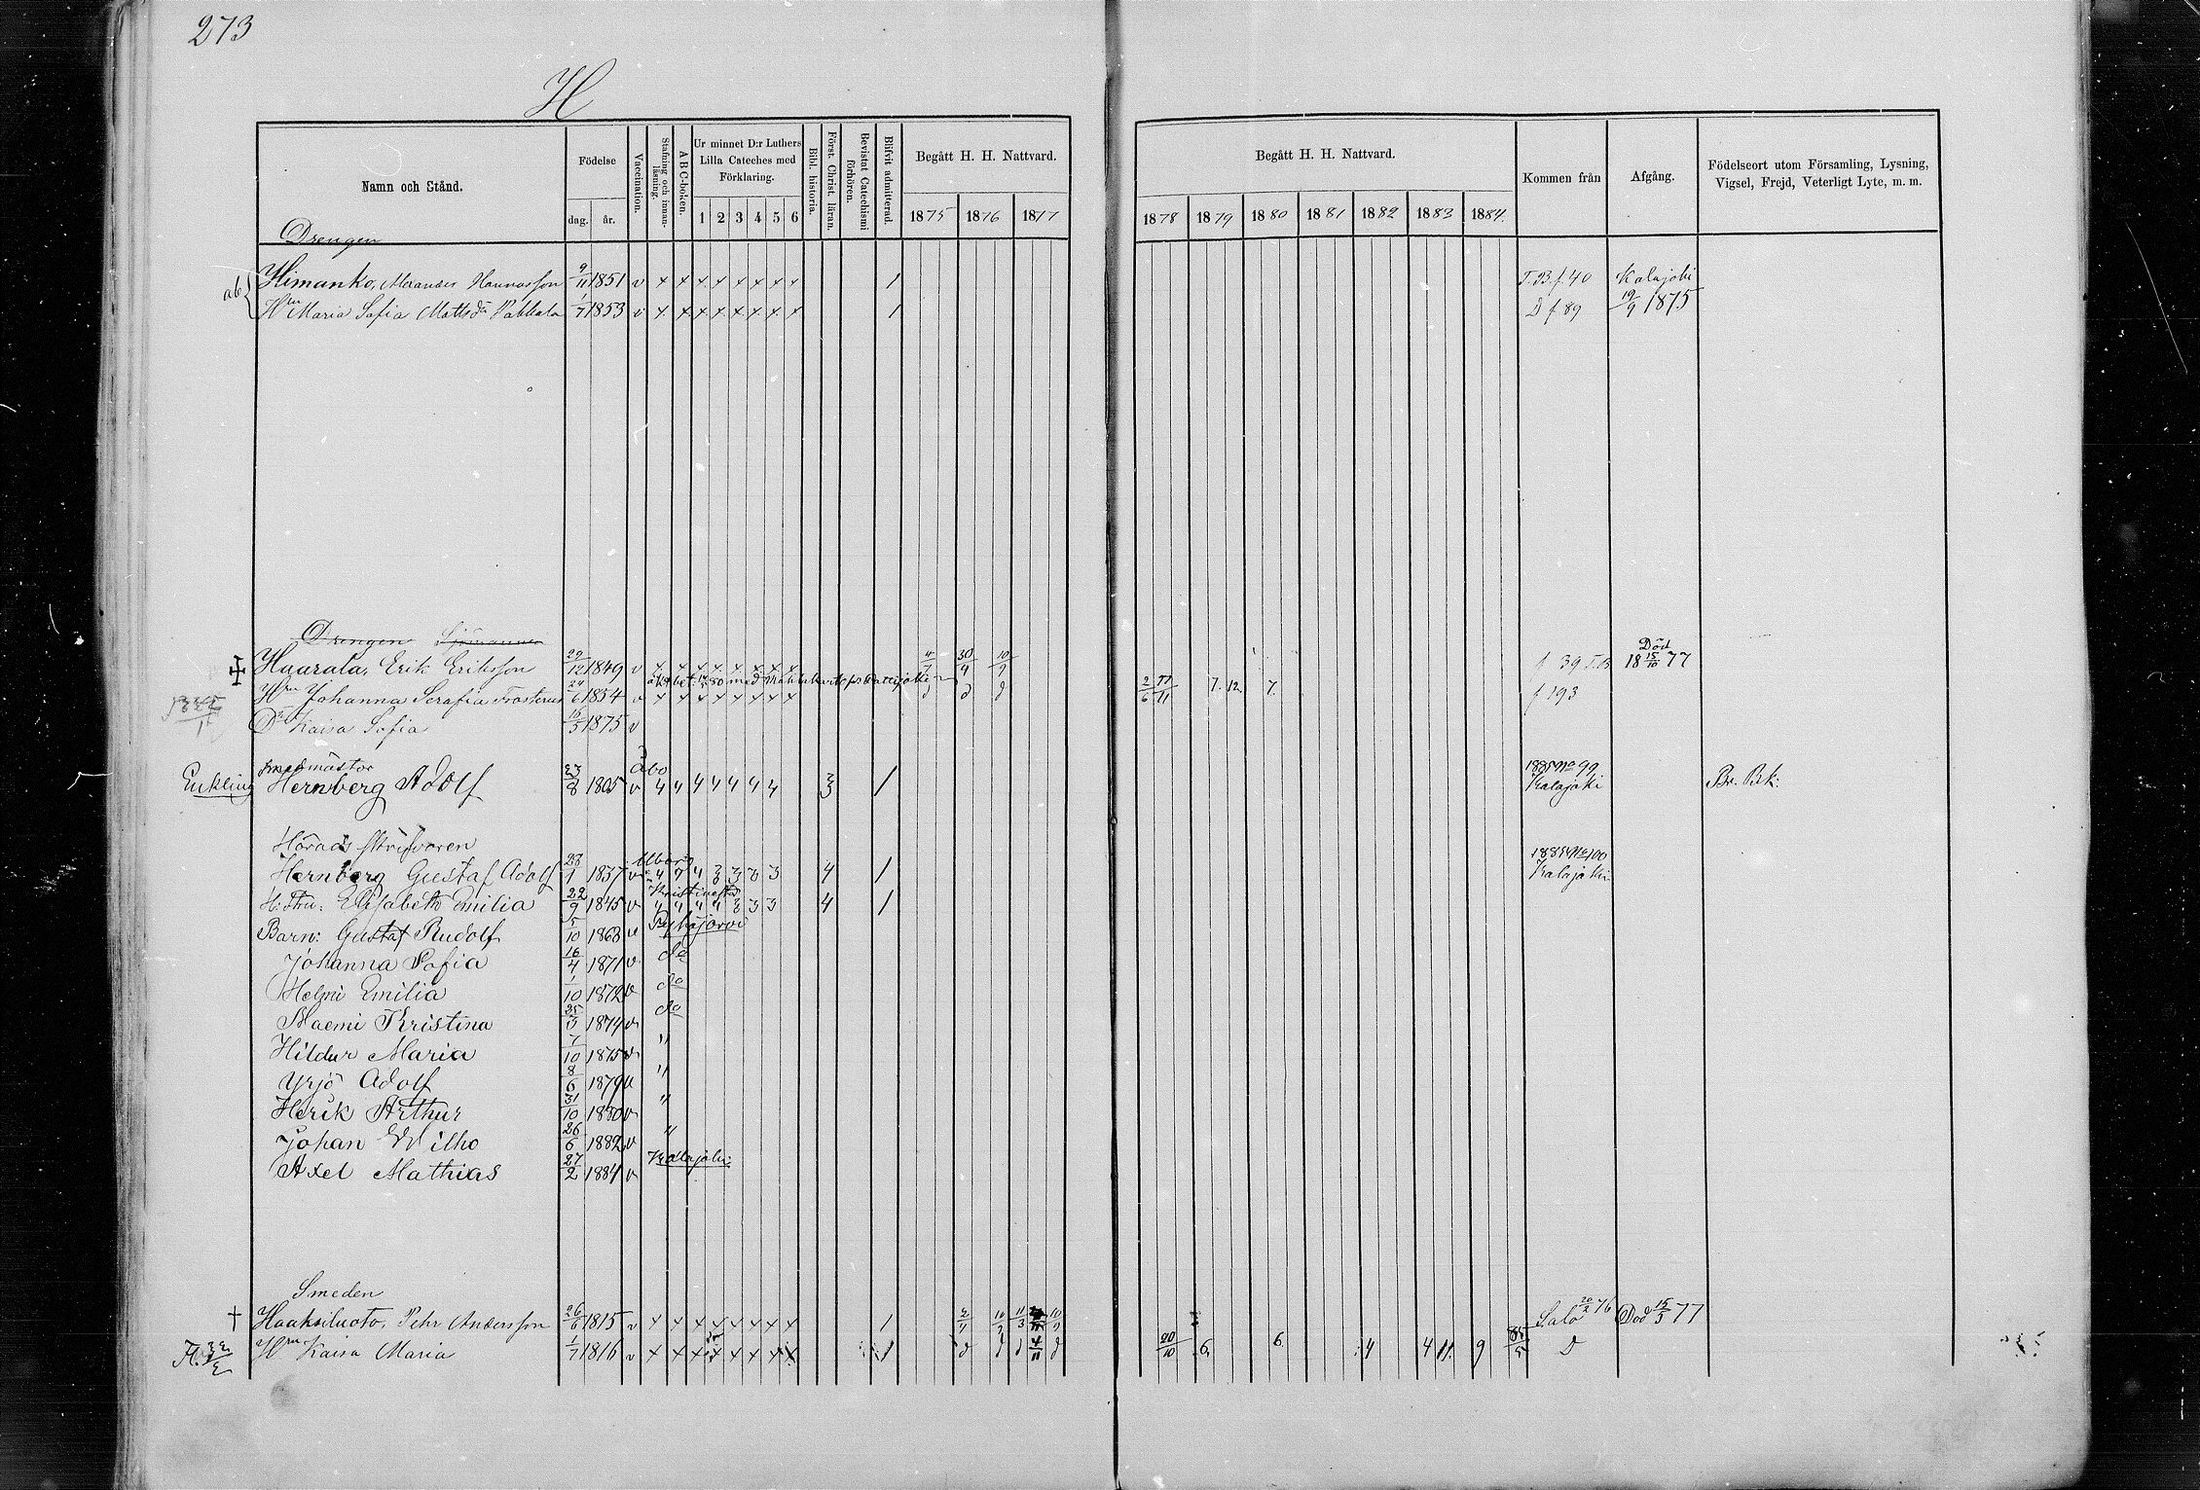 273
H
Namn och Stånd.
Födelse
dag.
år.
Vaccination.
Stafning och innan-läsning.
A B C-boken.
Ur minnet D:r Luthers Lilla Cateches med Förklaring.
1 2 3 4 5 6
Bibl. historia.
Först. Christ. läran.
Bevistat Catechismi förhören.
Blifvit admitterad.
Begått H. H. Nattvard.
1875 1876 1877
Begått H. H. Nattvard.
1878 1879 1880 1881 1882 1883 1884
Kommen från
Afgång.
Födelseort utom Församling, Lysning, Vigsel, Frejd, Veterligt Lyte, m. m.
Drengen
Himanko, Hannusson 9/11 1851 v x x x x x x x x 1 T.B. f. 40 Kalajoki
Hru Maria Sofia Mattsdr 1/7 1853 v x x x x x x x x 1 D f 89 19/9 1875
Drengen
Haarala, Erik Eriksson 29/12 1849 v x x x x x x x x 4/7 30/9 10/9 f 39 T.B Död 18 15/10 77
Hru Johanna Serafia Frosterus 24/6 1854 v x x x x x x x x d d d 2/6 7. 12. 7. f 193
Dr Kaisa Sofia 16/5 1875 v
Smedmästor Åbo 1885 No 99
Enkling Hernberg Adolf 23/8 1805 v 4 4 4 4 4 4 4 4 3/3 1 Kalajoki Br. Bek:
Härads skrifvaren 1885 No 100
Hernberg Gustaf Adolf 23/1 1837 v 4 4 4 3 3 3 3 4 1 Kalajoki
Hustru: Elisabeth Emilia 22/9 1845 v Kristinestad 4 4 4 4 3 3 3 4 1
Barn: Gustaf Rudolf 5/10 1868 v Pyhäjärvi
Johanna Sofia 16/4 1871 v do
Helmi Emilia 1/10 1872 v do
Naemi Kristina 25/3 1874 v do
Hildur Maria 7/10 1875 v "
Yrjö Adolf 8/6 1879 v "
Herik Arthur 31/10 1880 v "
Johan Wilho 26/6 1882 v "
Axel Mathias 27/2 1884 v Kalajoki
Smeden
† Haaksiluoto, Pehr Andersson 26/6 1815 v x x x x x x x x 1 Salo 20/2 76 Död 15/3 77
Hru Kaisa Maria 1/7 1816 v x x x x x x x x 1 20/10 6. 6. 4 4 11. 9 D